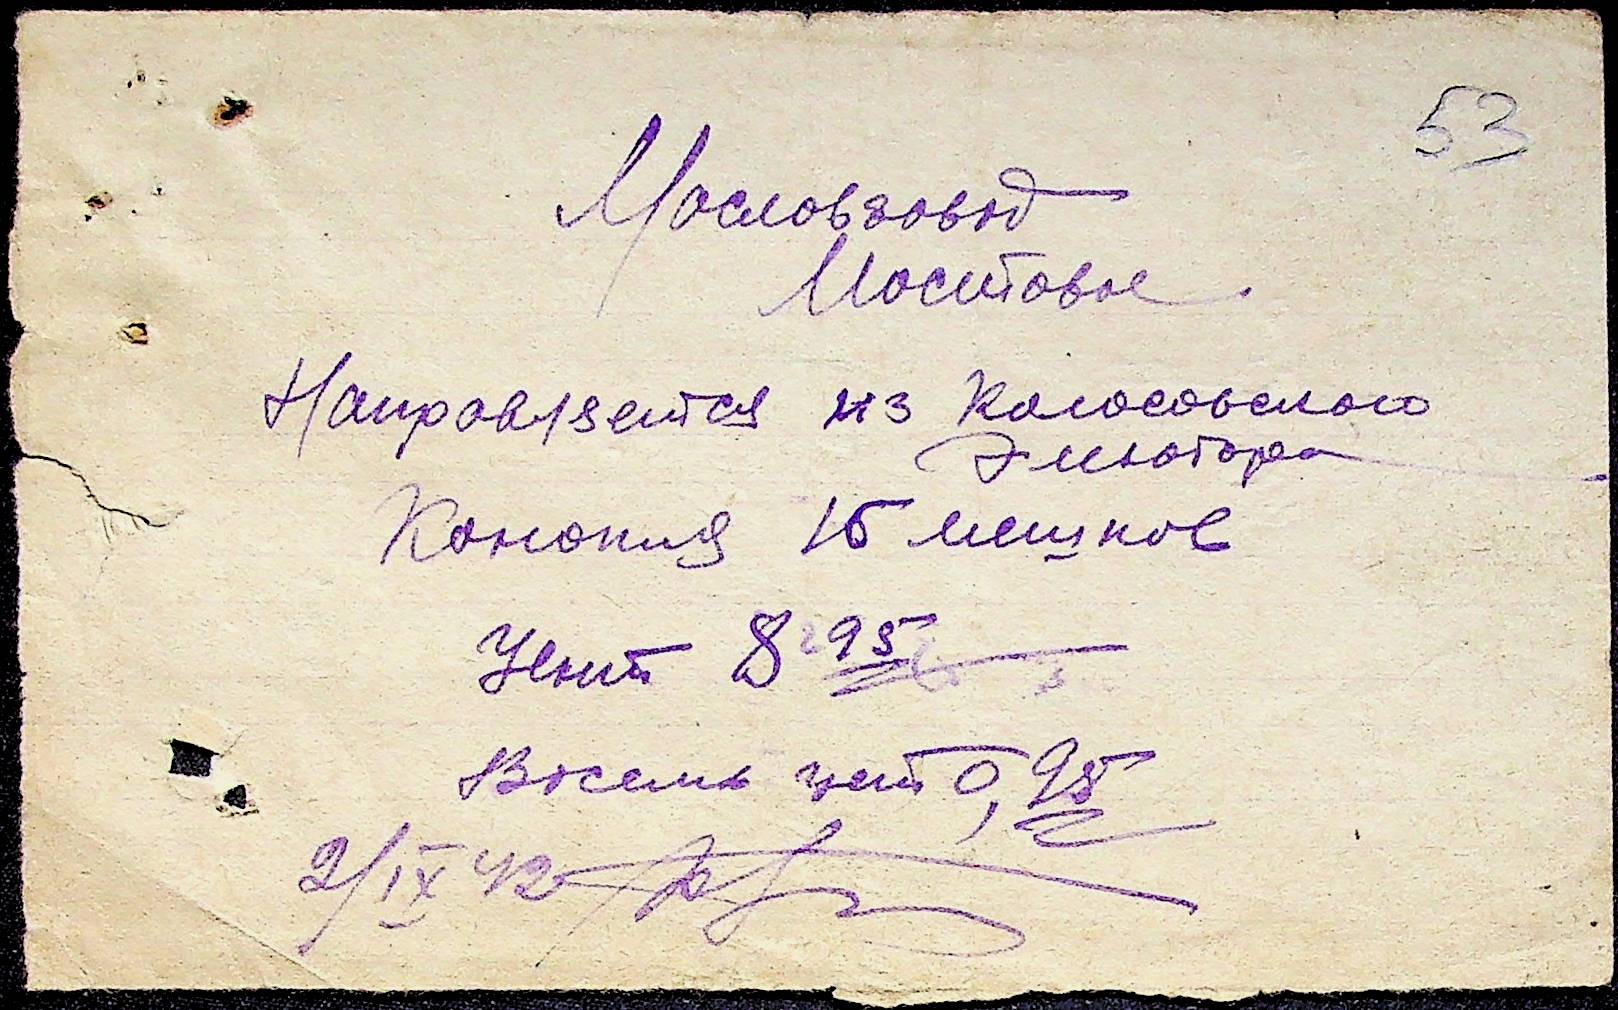 53
Маслозавод
Мостовое.
Направляется из Колосовского
Элеватора
Конопля 15 мешков
Цент 8 95
Восемь цент 0,95
2/IX 42